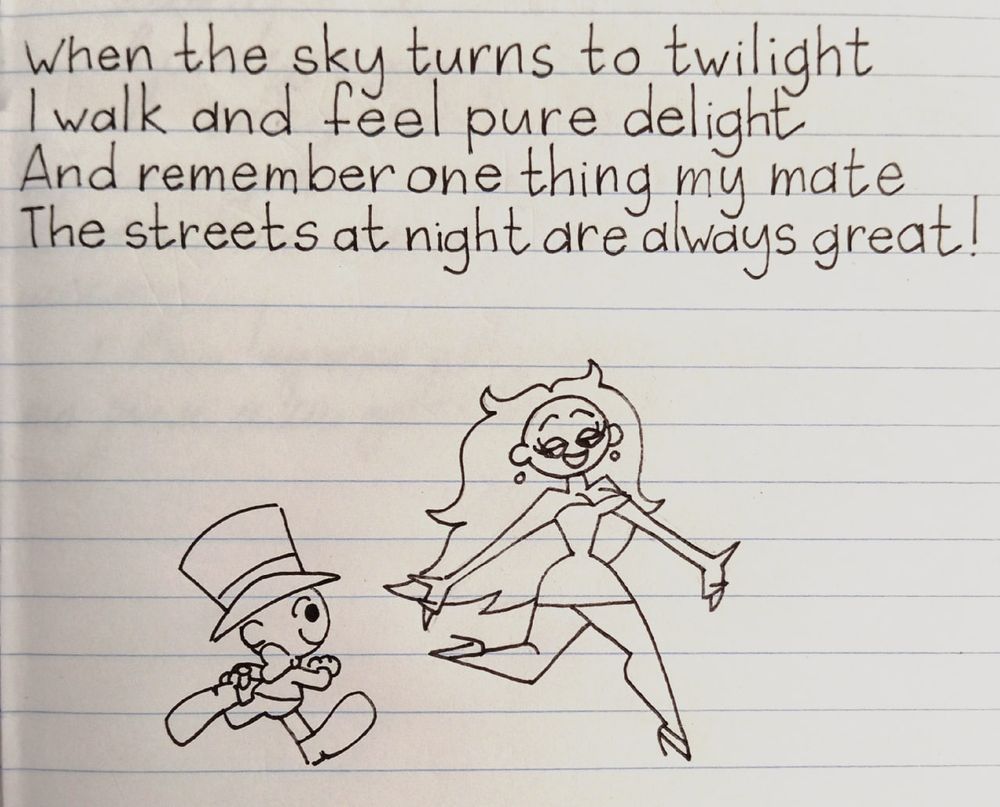 When the sky turns to twilight
I walk and feel pure delight
And remember one thing my mate
The streets at night are always great!